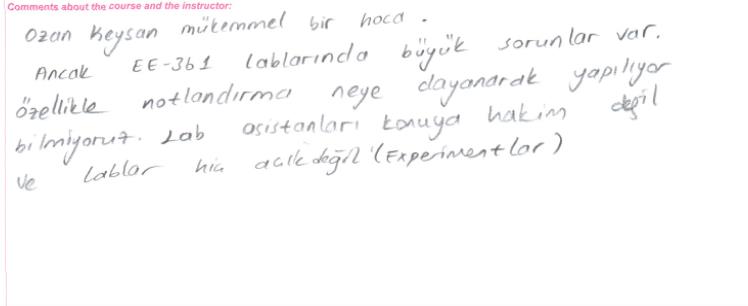 Comments about the course and the instructor:
Ozan Keysan mükemmel bir hoca.
Ancak EE-361 lablarında büyük sorunlar var.
özellikle notlandırma neye dayanarak yapılıyor
bilmiyoruz. Lab asistanları konuya hakim değil
ve lablar hiç açık değil (Experimentlar)